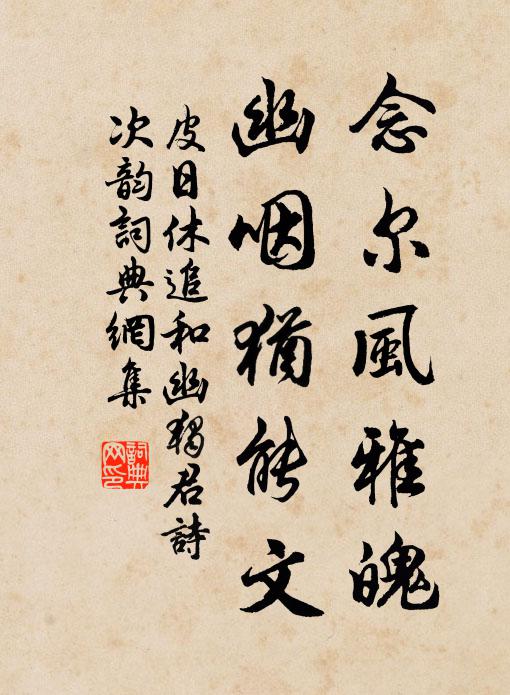 念尔風雅魄
幽咽猶能文
皮日休追和幽獨君詩
次韵詞典網集
詞典
网印